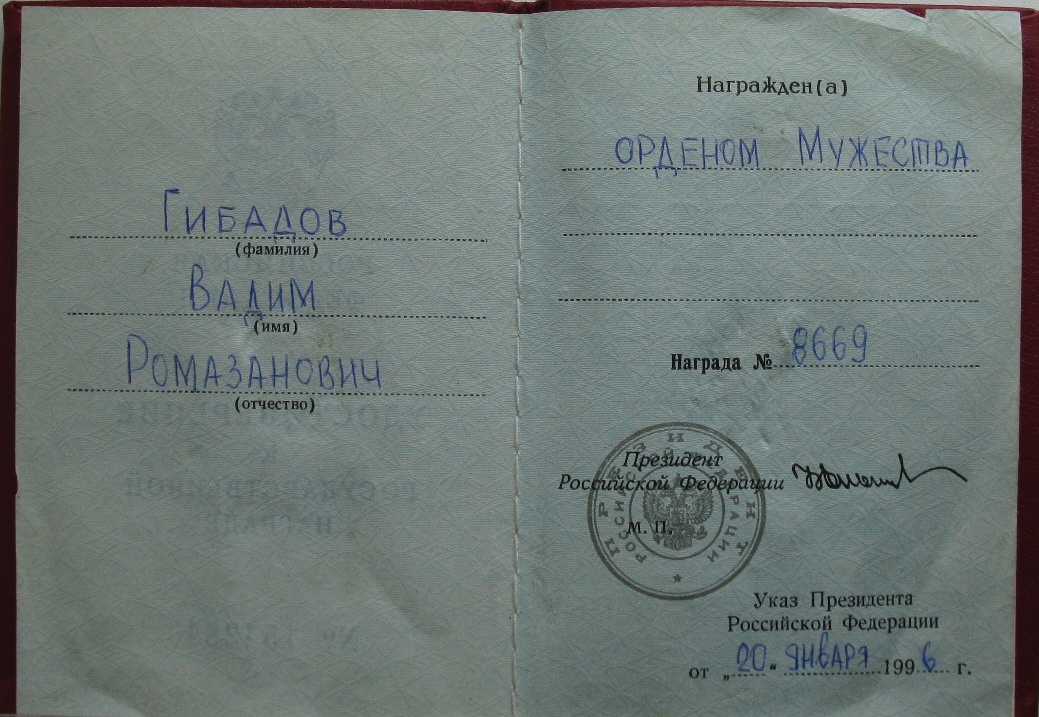 Гибадов
(фамилия)
Вадим
(имя)
Ромазанович
(отчество)
Награжден(а)
орденом Мужества
Награда № 8669
Президент
Российской Федерации
М. П.
ПРЕЗИДЕНТ
РОССИЙСКОЙ ФЕДЕРАЦИИ
Указ Президента
Российской Федерации
от „20“ января 1996 г.